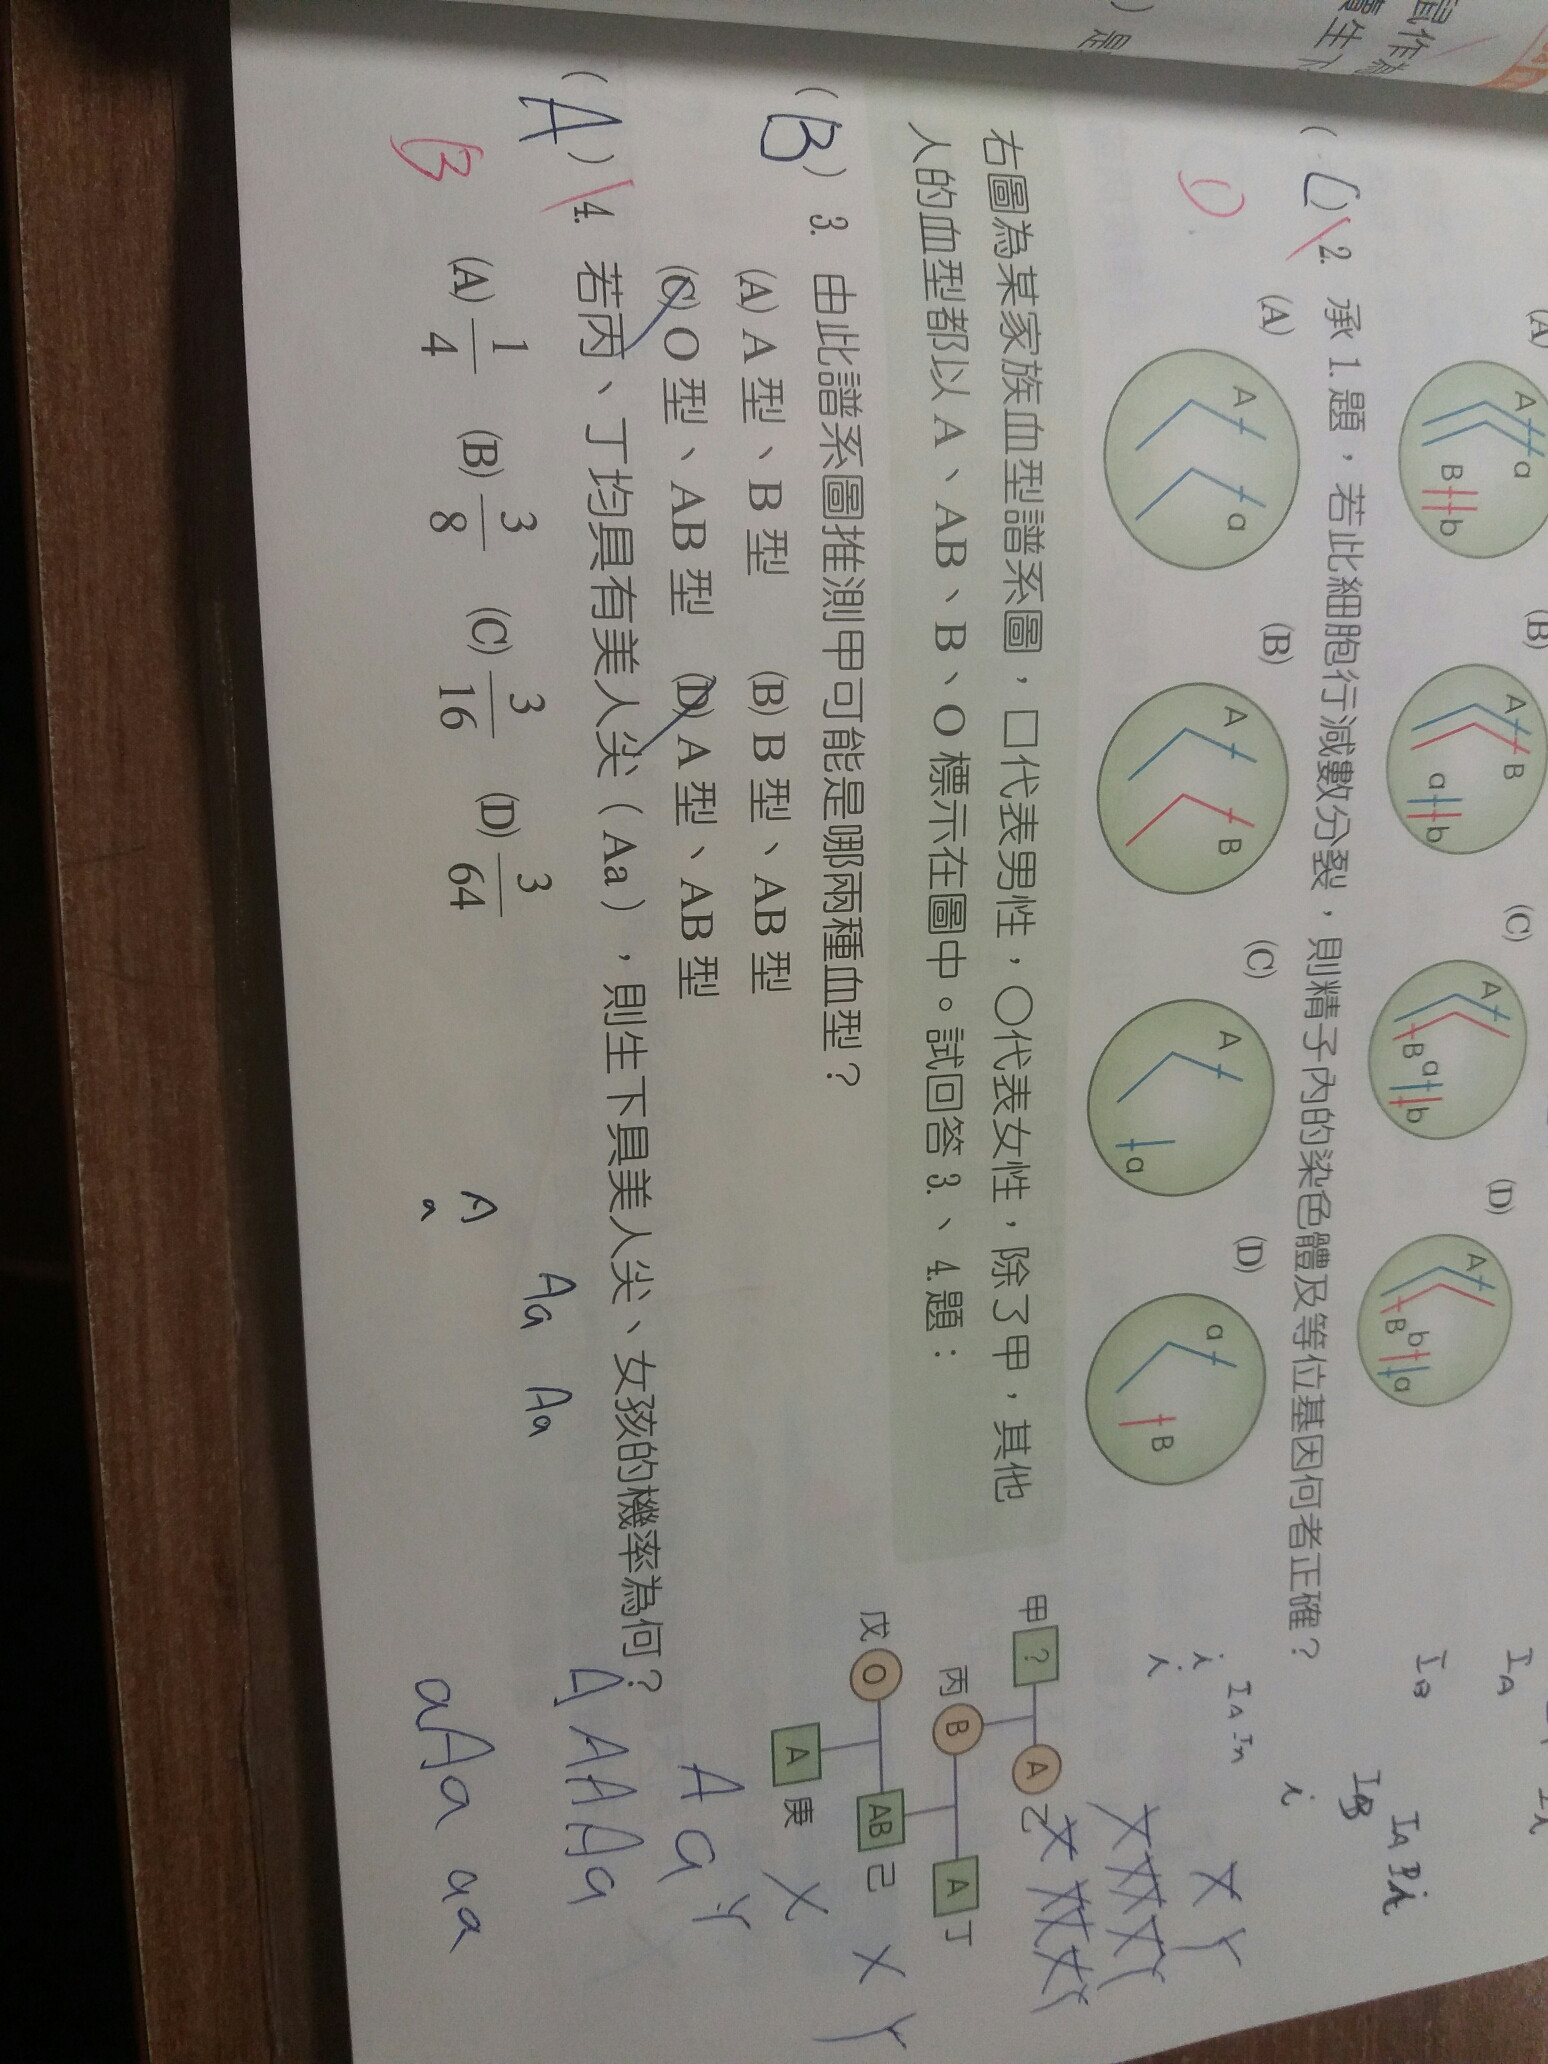 鼠作為
) 是
(A) (B) (C) (D)
A a B b
A B a b
A B a b
A B b a
( C ) 2. 承 1. 題，若此細胞行減數分裂，則精子內的染色體及等位基因何者正確？
D
(A) (B) (C) (D)
A a
A B
A a
a B
右圖為某家族血型譜系圖，□代表男性，○代表女性，除了甲，其他
人的血型都以 A、AB、B、O 標示在圖中。試回答 3.、4. 題：
甲 ? A 乙
丙 B A 丁
戊 O AB 己
A 庚
( B ) 3. 由此譜系圖推測甲可能是哪兩種血型？
(A) A 型、B 型 (B) B 型、AB 型
(C) O 型、AB 型 (D) A 型、AB 型
( A ) 4. 若丙、丁均具有美人尖（Aa），則生下具美人尖、女孩的機率為何？
B
(A) 1/4 (B) 3/8 (C) 3/16 (D) 3/64
Aa Aa
A
a
X Y
X Y
A a
A AA Aa
a Aa aa